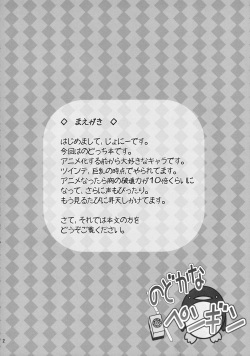 ◇ まえがき ◇
はじめまして、じょにーです。
今回はのどっち本です。
アニメ化する前から大好きなキャラです。
ツインテ、巨乳の時点でやられてます。
アニメなったら胸の破壊力が10倍くらいに
なって、さらに声もぴったり。
もう見るたびに昇天しかけてます。
さて、それでは本文の方を
どうぞご覧ください。
のどかな
ペンギン